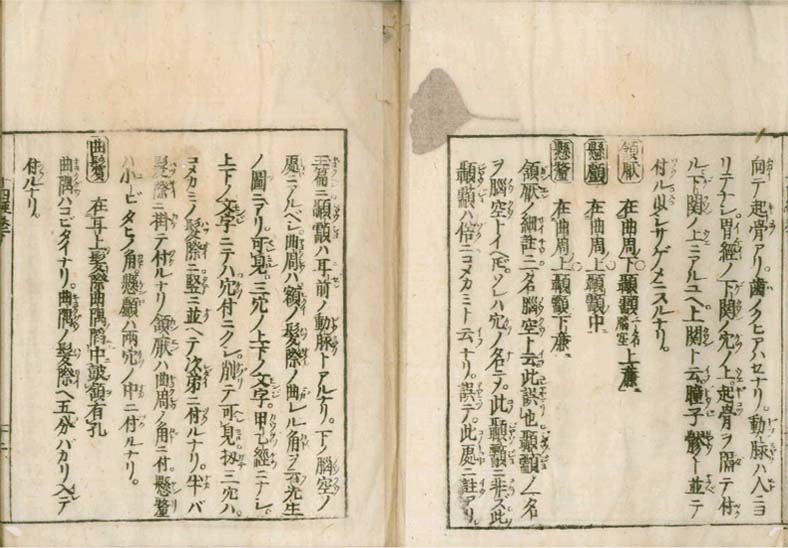 向テ起骨アリ。歯クヒアハセナリ。動脉ハ人ニヨ
リテナシ。胃經ノ下関ノ穴ノ上。起骨ヲ隔テ付
ル。下関ノ上ニアルユヘ上関ト云。瞳子髎ト並テ
付ル。少シサゲメニスルナリ。
頷厭 在曲周下顳顬一名腦空上廉
懸顱 在曲周上顳顬中
懸釐 在曲周上顳顬下廉
頷厭ノ細註ニ一名腦空ト云此誤也顳顬ノ一名
ヲ腦空トイヘ𪜈ソレハ穴ノ名ヲ。此顳顬ニ非ズ此
顳顬ハ俗ニコメカミト云ナリ。誤テ。此處ニ註アリ。
玉篇ニ顳顬ハ耳前ノ動脉トアルナリ。下ノ腦空ノ
處ニアルベシ曲周ハ額ノ髮際ノ曲レル角ヲ云先生
ノ圖ニアリ。可見。三穴ノ上下ノ文字。甲乙經ニナシ。
上下ノ文字ニテハ穴付ニクシ。削テ可見扨三穴ハ。
コメカミノ髮際ニ竪ニ並ヘテ次第ニ付ルナリ。半バ
髮際ニ掛テ付ルナリ頷厭ハ曲周ノ角ニ付。懸釐
ハ小ビタヒノ角懸顱ハ兩穴ノ中ニ付ルナリ。
曲髩 在耳上髮際曲隅陷中鼓頷有孔
曲隅ハコビタイナリ。曲隅ノ髮際ヘ五分バカリヘデ
付ルナリ。